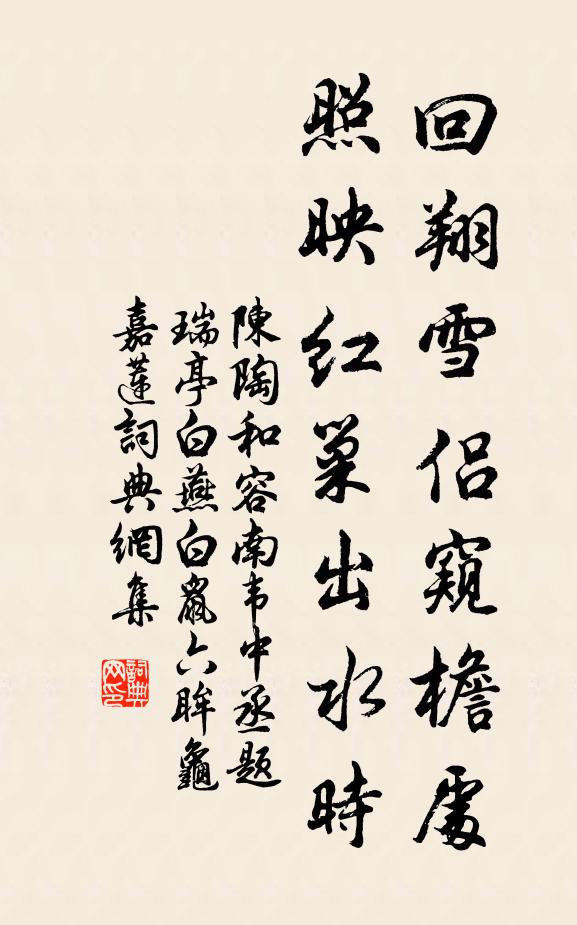 回翔雪侶窺檐處
照映紅巢出水時
陳陶和容南韦中丞題
瑞亭白燕白鼠六眸龜
嘉蓮詞典網集
詞典
网印